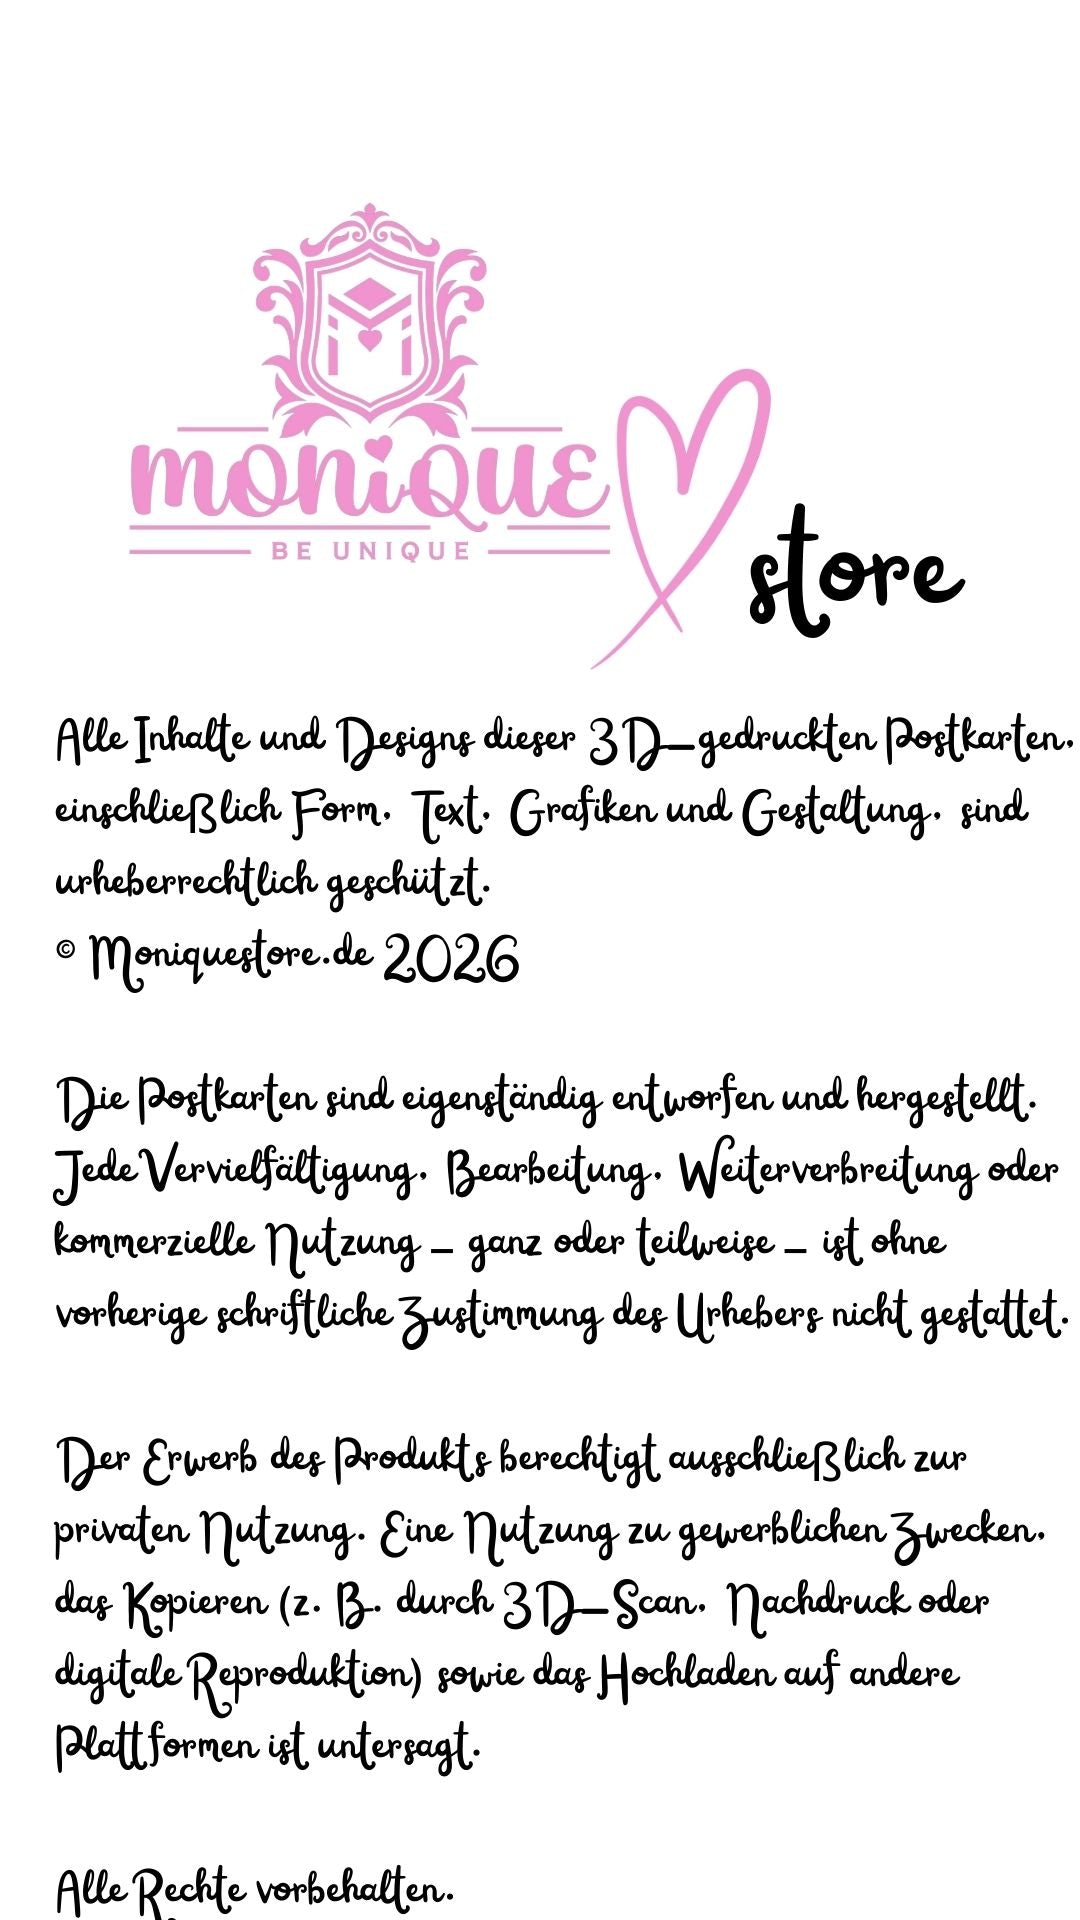 monique
BE UNIQUE
store
Alle Inhalte und Designs dieser 3D-gedruckten Postkarten,
einschließlich Form, Text, Grafiken und Gestaltung, sind
urheberrechtlich geschützt.
© Moniquestore.de 2026
Die Postkarten sind eigenständig entworfen und hergestellt.
Jede Vervielfältigung, Bearbeitung, Weiterverbreitung oder
kommerzielle Nutzung – ganz oder teilweise – ist ohne
vorherige schriftliche Zustimmung des Urhebers nicht gestattet.
Der Erwerb des Produkts berechtigt ausschließlich zur
privaten Nutzung. Eine Nutzung zu gewerblichen Zwecken,
das Kopieren (z. B. durch 3D-Scan, Nachdruck oder
digitale Reproduktion) sowie das Hochladen auf andere
Plattformen ist untersagt.
Alle Rechte vorbehalten.